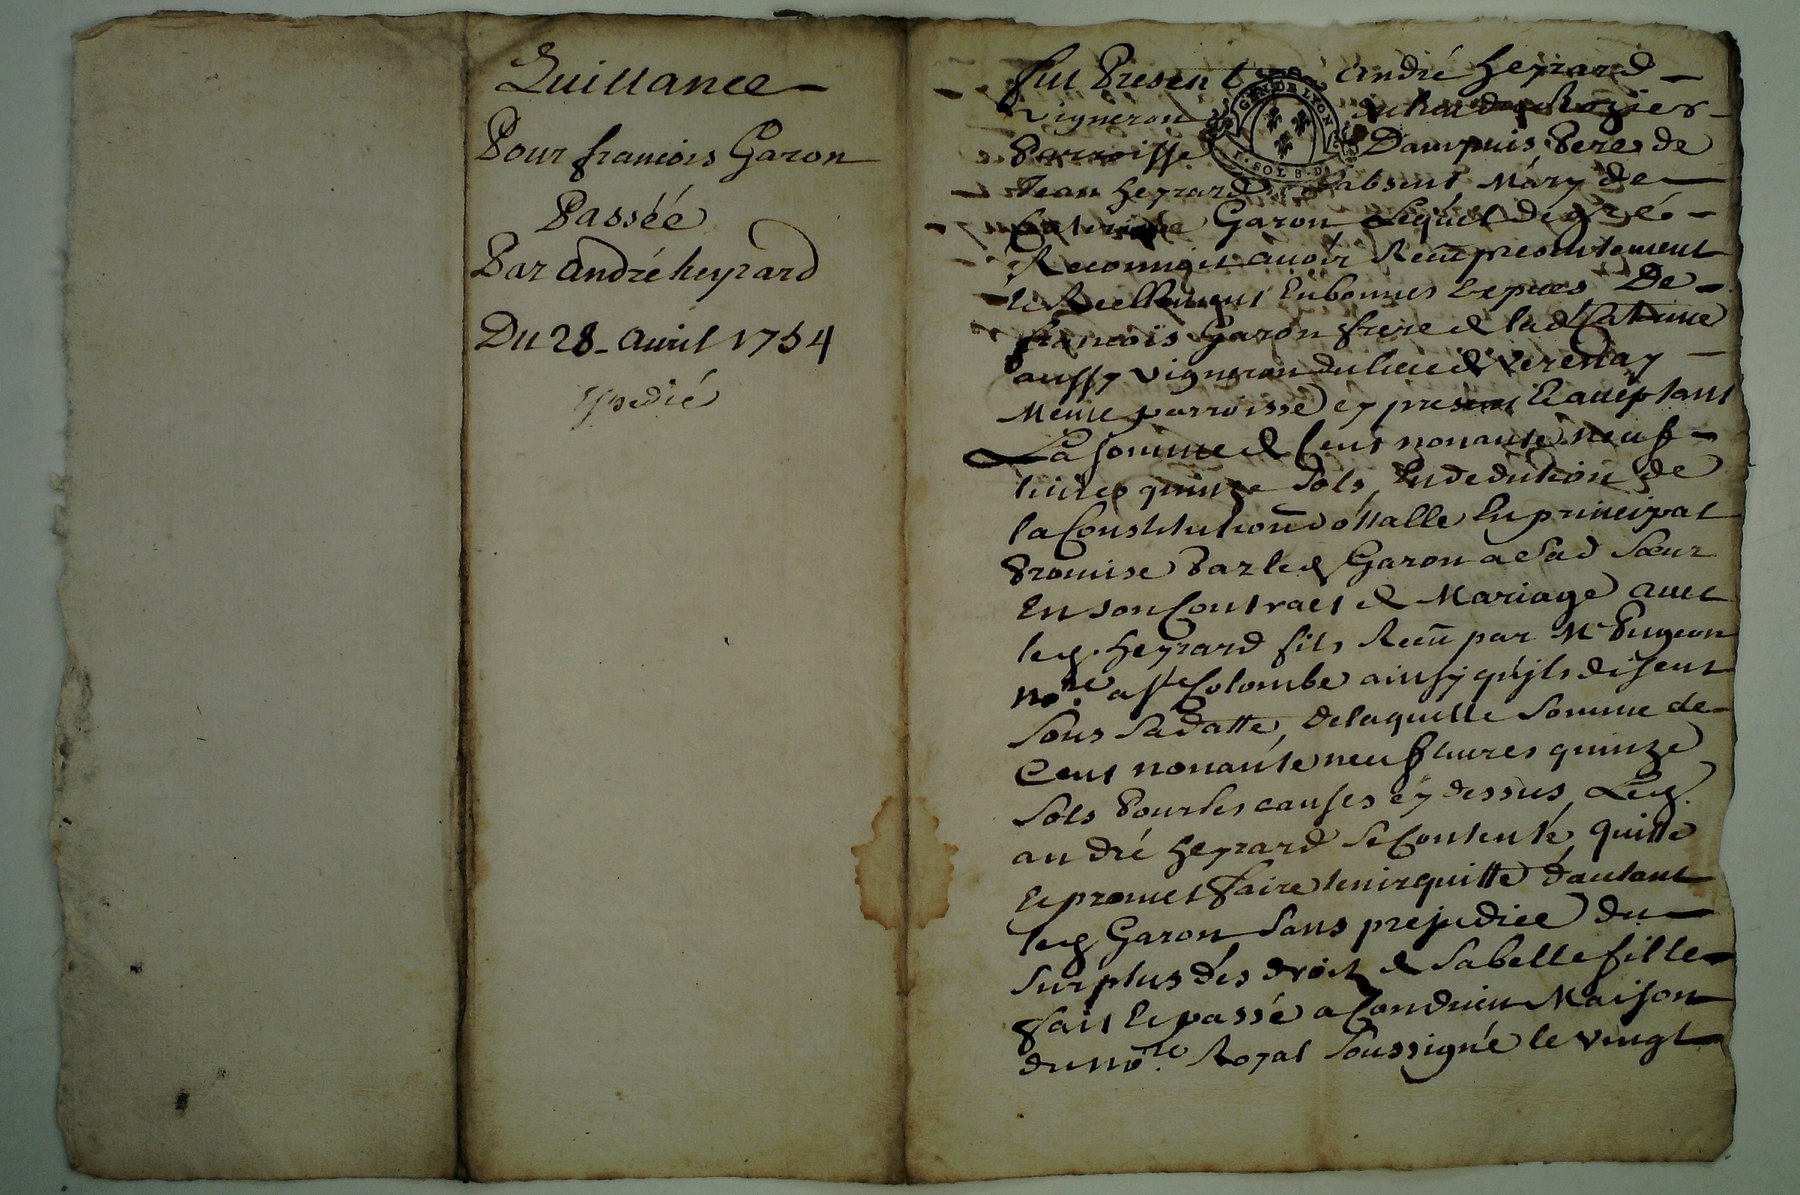 Quittance
Pour francois Garon
Passée
Par andré heyrard
Du 28 avril 1754
Expedié
fut Present andré heyrard
vigneron
GEN DE LYON
SOL 8 D
Parroisse Dampuis Pere de
Jean heyrard absent Mary de
Catherine Garon Lequel de gré
Reconnoit avoir Receu presentement
Et Reellement En bonnes Especes De
francois Garon frere de lad Catherine
aussy vigneron du lieu de verenay
Meme parroisse cy present Et aceptant
La somme de Cent nonante neuf
livres quinze sols En dedution de
la Constitution dottalle En principal
Promise Par led Garon a sad sœur
En son Contract de Mariage avec
led. heyrard fils Receu par Me Pugeon
nore. a ste Colombe ainsy qu'jls disent
sous sa datte, de laquelle somme de
Cent nonante neuf livres quinze
sols Pour les causes cy dessus Led.
andré heyrard se Contente, quitte
Et promet faire tenir quitte d'autant
led Garon sans prejudice du
surplus des droits de sa belle fille
fait Et passé a Condrieu Maison
du nore. Royal soussigné le vingt